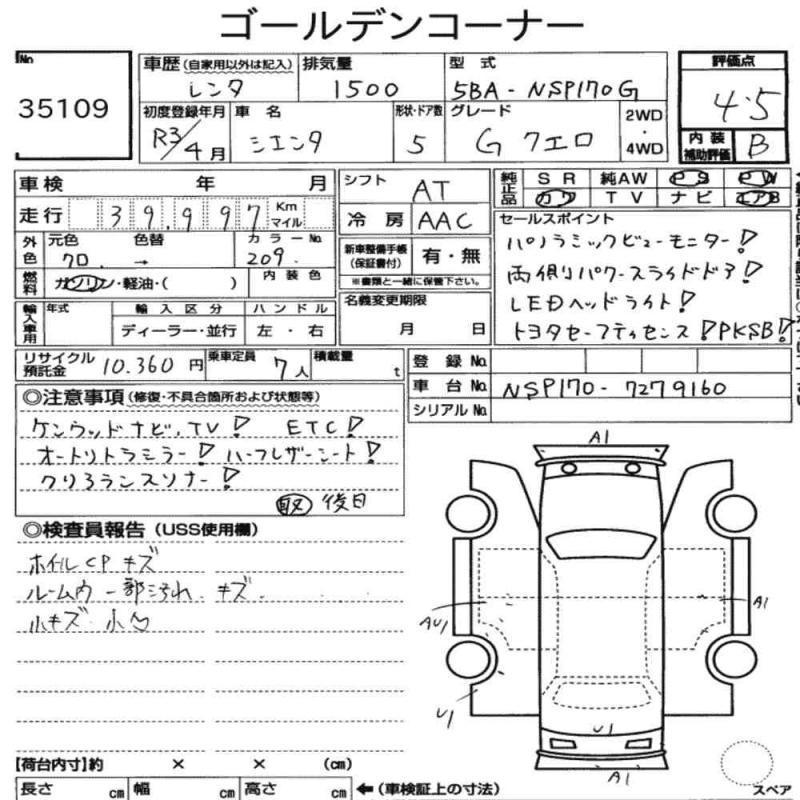 ゴールデンコーナー
No
35109
車歴 (自家用以外は記入)
レンタ
排気量
1500
型式
5BA-NSP170G
評価点
4.5
初度登録年月
R3/4月
車名
シエンタ
形状・ドア数
5
グレード
G クエロ
2WD
・
4WD
内装
補助評価
B
車検 年 月
走行 39,997 Km
マイル
シフト
AT
冷房
AAC
純正品
SR 純AW PS PW
カワ TV ナビ エアB
外色
元色 色替 カラーNo
クロ → 209
燃料
ガソリン・軽油・( )
内装色
新車整備手帳
(保証書付)
有・無
※書類と一緒に保管下さい。
セールスポイント
パノラミックビューモニター!
両側パワースライドドア!
LEDヘッドライト!
トヨタセーフティセンス! PKSB!
輸入車用
年式 輸入区分 ハンドル
ディーラー・並行 左・右
名義変更期限
月 日
リサイクル
預託金
10.360円
乗車定員
7人
積載量
t
登録No
車台No
NSP170-7279160
シリアルNo
◎注意事項(修復・不具合箇所および状態等)
ケンウッドナビ、TV! ETC!
オートリトラミラー! ハーフレザーシート!
クリアランスソナー!
取 後日
◎検査員報告(USS使用欄)
ホイルCP キズ
ルーム内 一部汚れ. キズ.
小キズ 小凹
A1
AU1
A1
U1
U1
A1
スペア
【荷台内寸】約 × × (cm)
長さ cm 幅 cm 高さ cm ←(車検証上の寸法)